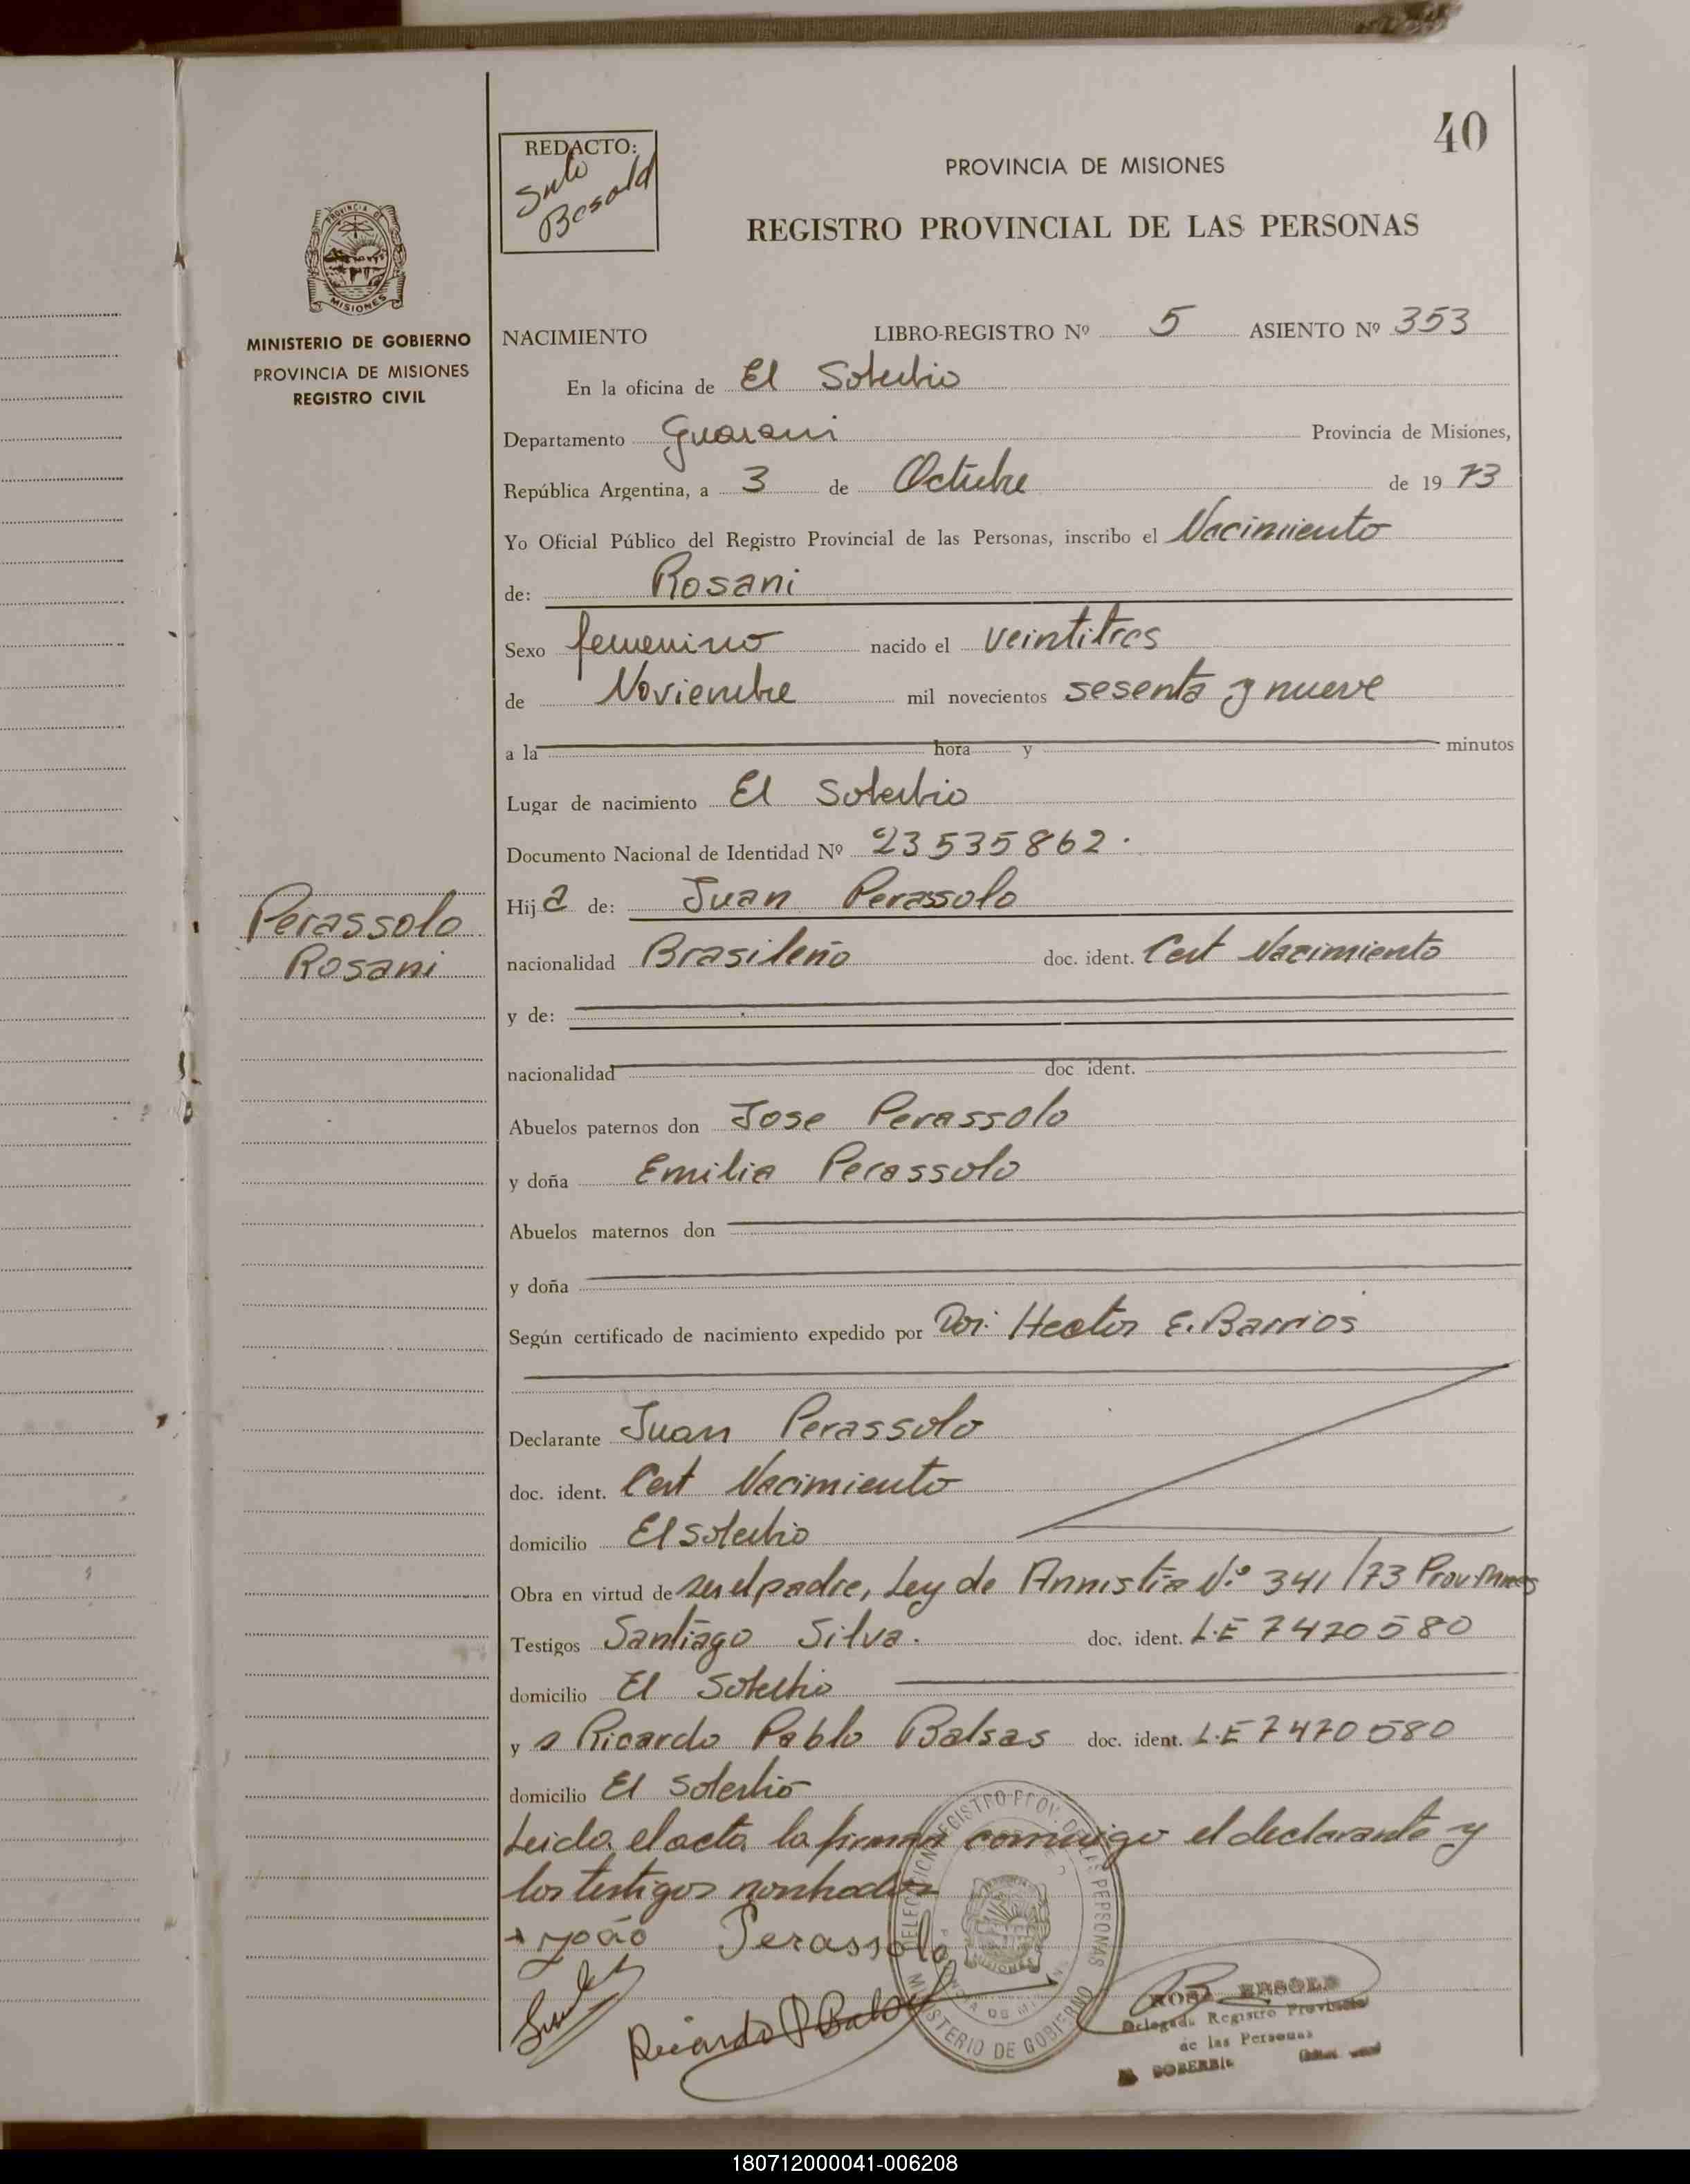 40
REDACTO:
Besold
PROVINCIA DE MISIONES
REGISTRO PROVINCIAL DE LAS PERSONAS
PROVINCIA DE
MISIONES
MINISTERIO DE GOBIERNO
PROVINCIA DE MISIONES
REGISTRO CIVIL
NACIMIENTO LIBRO-REGISTRO Nº 5 ASIENTO Nº 353
En la oficina de El Soberbio
Departamento Guarani Provincia de Misiones,
República Argentina, a 3 de Octubre de 19 73
Yo Oficial Público del Registro Provincial de las Personas, inscribo el Nacimiento
de: Rosani
Sexo femenino nacido el veintitres
de Noviembre mil novecientos sesenta y nueve
a la hora y minutos
Lugar de nacimiento El Soberbio
Documento Nacional de Identidad Nº 23535862.
Hija de: Juan Perassolo
Perassolo
Rosani
nacionalidad Brasileño doc. ident. Cert Nacimiento
y de:
nacionalidad doc ident.
Abuelos paternos don Jose Perassolo
y doña Emilia Perassolo
Abuelos maternos don
y doña
Según certificado de nacimiento expedido por Dr. Hector E. Barrios
Declarante Juan Perassolo
doc. ident. Cert Nacimiento
domicilio El Soberbio
Obra en virtud de ser el padre, Ley de Amnistia N.º 341/73 Prov. Mnes
Testigos Santiago Silva. doc. ident. L.E 7470580
domicilio El Soberbio
y Ricardo Pablo Balsas doc. ident. L.E 7470580
domicilio El Soberbio
Leida el acta la firman conmigo el declarante y
los testigos nombrados
João Perassolo
Ricardo P Balsas
REGISTRO PROV. DE LAS PERSONAS
MINISTERIO DE GOBIERNO
ROSA BESOLD
Delegada Registro Provincial
de las Personas
SOBERBIO
180712000041-006208